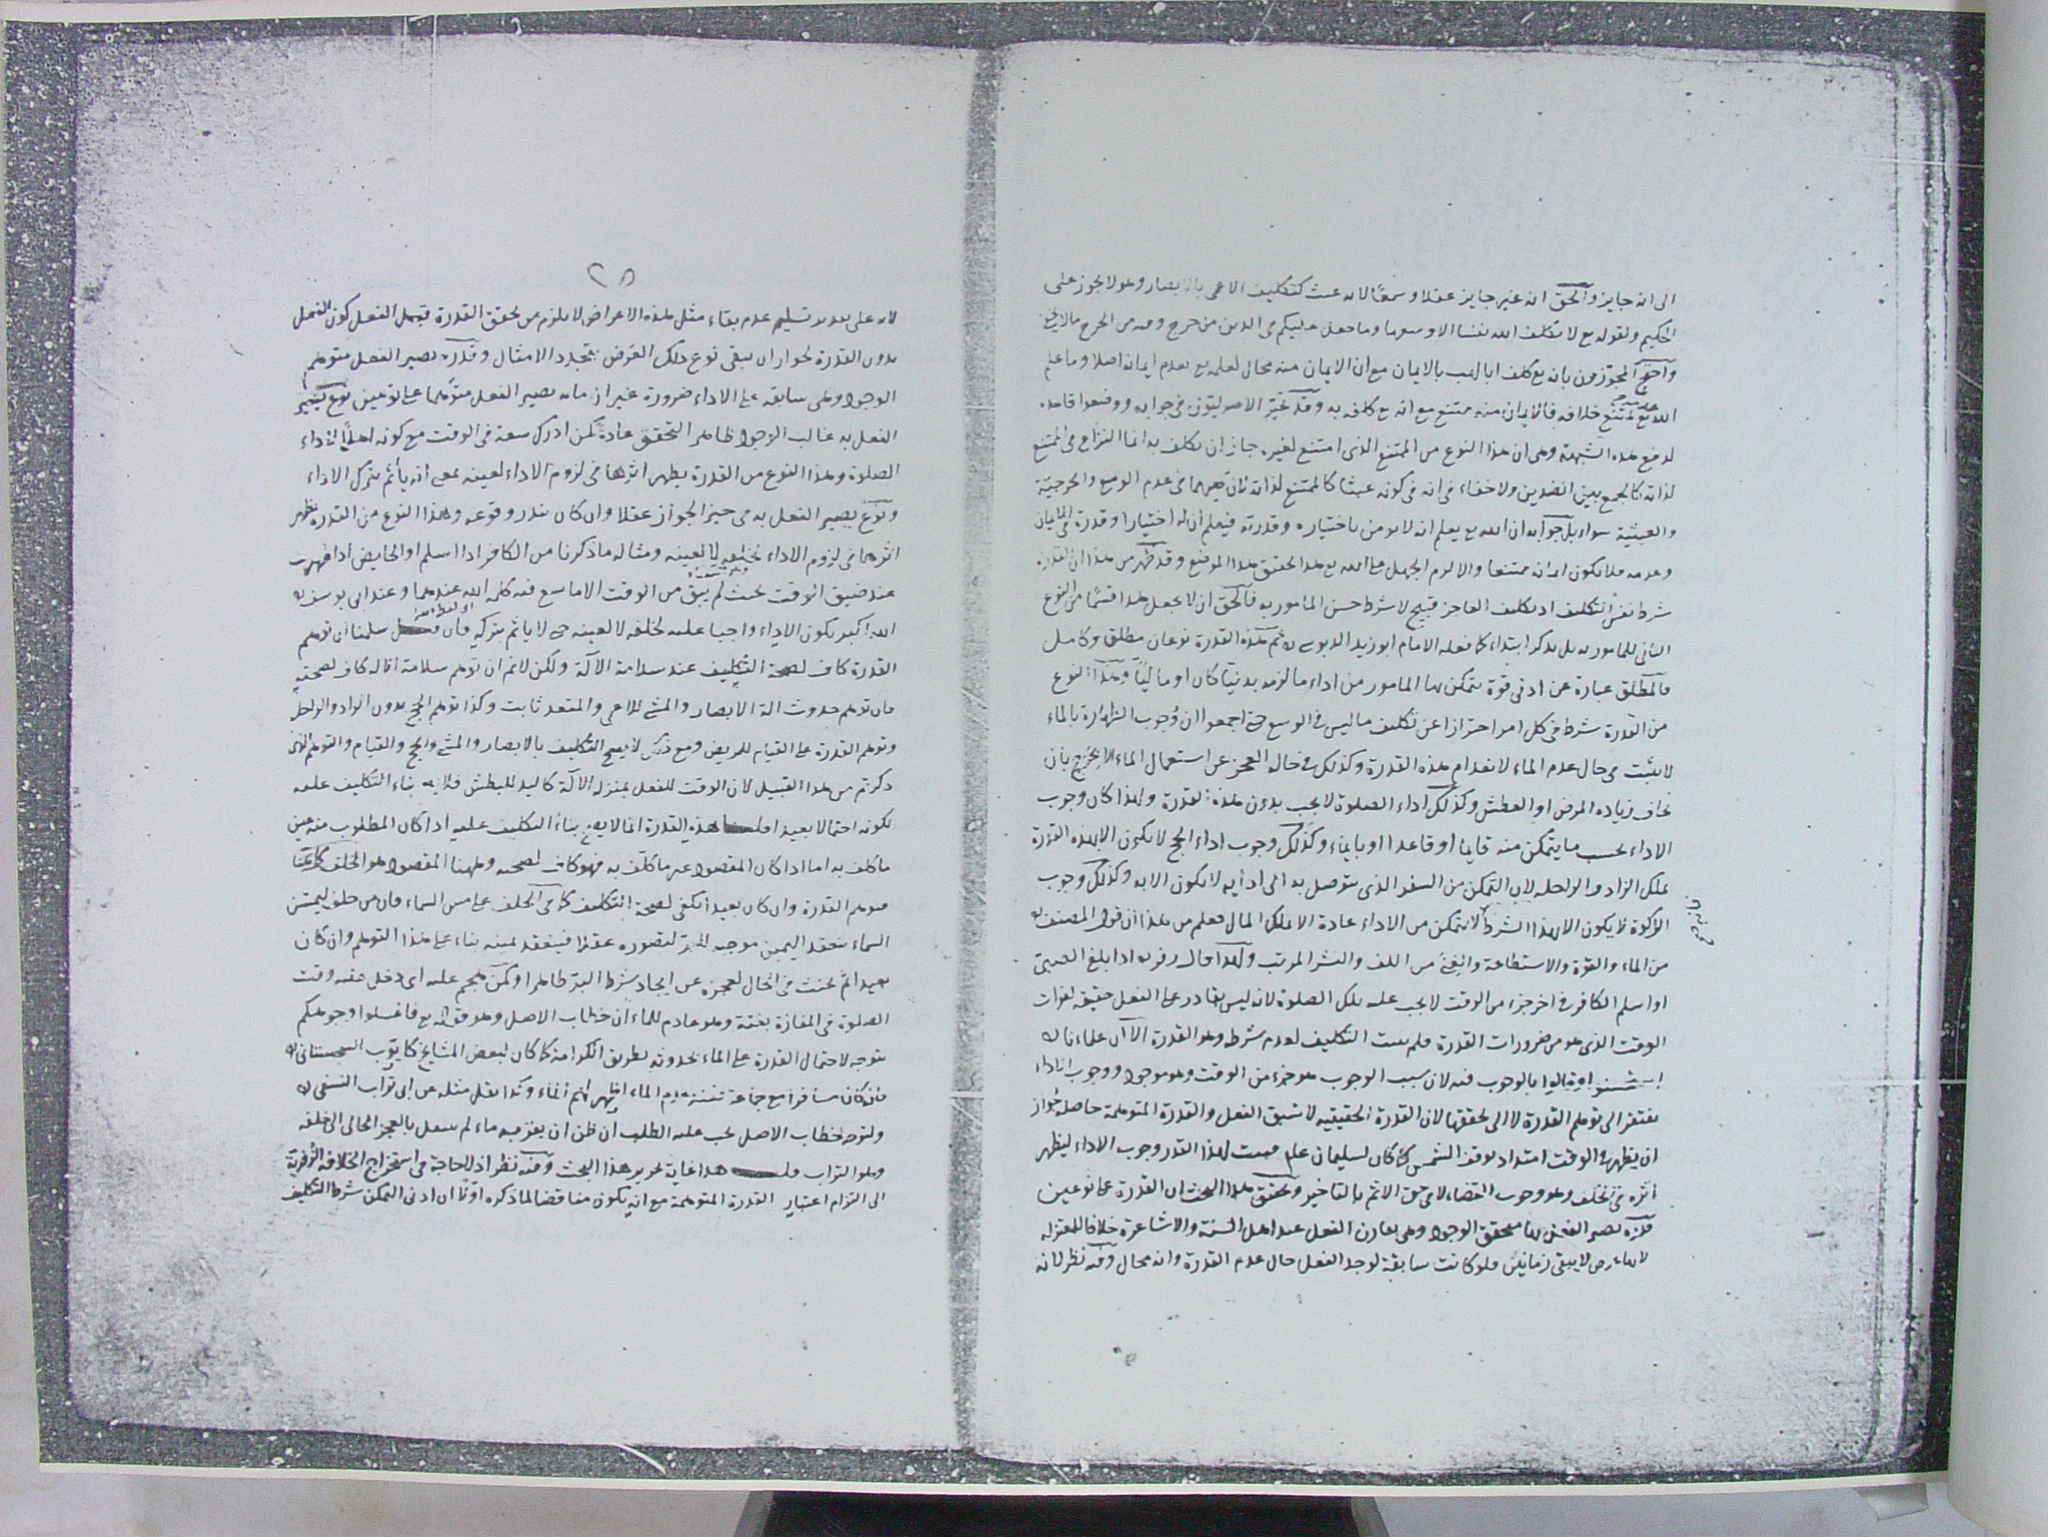 الى انه جايز والحق انه غير جايز عقلا وسمعا لانه عبث كتكليف الاعمى بالابصار وهو لا يجوز على
الحكيم ولقوله تع لا يكلف الله نفسا الا وسعها وما جعل عليكم فى الدين من حرج وفيه من الحرج مالا يخفى
واحتج المجوزون بانه تع كلف ابا لهب بالايمان مع ان الايمان منه محال لعلمه تع بعدم ايمانه اصلا وما علم
الله تع يمتنع خلافه فالايمان منه ممتنع مع انه تع كلفه به وقد تحير الاصوليون فى جوابه ووضعوا قاعده
لدفع هذه الشبهة وهى ان هذا النوع من الممتنع الذى امتنع لغيره جاز ان يكلف به انما النزاع فى الممتنع
لذاته كالجمع بين الضدين ولا خفاء فى انه فى كونه عبثا كالممتنع لذاته فى عدم الوسع والحرجية
والعبثية سواء بل جوابه ان الله تع يعلم انه لا يومن باختياره وقدرته فيعلم ان له اختيارا وقدرة فى الايمان
وعدمه فلا يكون ايمانه ممتنعا والا لزم الجهل على الله تع هذا الحقق هذا الموضع وقد ظهر من هذا ان القدرة
شرط نفس التكليف اذ تكليف العاجز قبيح لا شرط حسن المامور به فالحق ان لا يجعل هذا قسما من النوع
الثانى للمامور به بل يذكر ابتداء كما فعله الامام ابو زيد الدبوسى ره ثم هذه القدرة نوعان مطلق وكامل
فالمطلق عبارة عن ادنى قوة يتمكن بها المامور من اداء ما لزمه بدنيا كان او ماليا وهذا النوع
من القدرة شرط فى كل امر احترازا عن تكليف ما ليس فى الوسع حتى اجمعوا ان وجوب الطهارة بالماء
لا يثبت فى حال عدم الماء لانعدام هذه القدرة وكذلك فى حاله العجز عن استعمال الماء الا بحرج بان
يخاف زياده المرض او العطش وكذلك اداء الصلوة لا يجب بدون هذه القدرة ولهذا كان وجوب
الاداء بحسب ما يتمكن منه قايما او قاعدا او بايماء وكذلك وجوب اداء الحج لا يكون الا بهذه القدرة
بملك الزاد والراحلة لان التمكن من السفر الذى يتوصل به الى ادايه لا يكون الا به وكذلك وجوب
الزكوة لا يكون الا بهذا الشرط لا يتمكن من الاداء عادة الا بملك المال فعلم من هذا ان قول المصنف ره
من الماء والقوة والاستطاعة والغنى من اللف والنشر المرتب ولهذا قال زفر ره اذا بلغ الصبى
او اسلم الكافر فى اخر جزء من الوقت لا يجب عليه تلك الصلوة لانه ليس بقادر على الفعل حقيقة لفوات
الوقت الذى هو من ضرورات القدرة فلم يثبت التكليف لعدم شرطه وهو القدرة الا ان علماءنا ره
استحسنوا وقالوا بالوجوب فيه لان سبب الوجوب هو جزء من الوقت وهو موجود ووجوب الاداء
يفتقر الى توهم القدرة لا الى تحققها لان القدرة الحقيقيه لا تسبق الفعل والقدرة المتوهمة حاصله لجواز
ان يظهر فى الوقت امتداد بوقف الشمس كما كان لسليمان علم فيثبت بهذا القدر وجوب الاداء ليظهر
اثره فى الخلف وهو وجوب القضاء لا فى حق الاثم بالتاخير وتحقيق هذا البحث ان القدرة على نوعين
قدرة يصير الفعل بها متحقق الوجود وهى تقارن الفعل عند اهل السنة والاشاعرة خلافا للمعتزله
لانها عرض لا يبقى زمانين فلو كانت سابقة لوجد الفعل حال عدم القدرة وانه محال وفيه نظر لانه
٢٥
لانه على تقدير تسليم عدم بقاء مثل هذه الاعراض لا يلزم من تحقق القدرة قبل الفعل كون الفعل
بدون القدرة لجواز ان يبقى نوع ذلك العرض بتجدد الامثال وقدرة يصير الفعل متوهم
الوجود وهى سابقه على الاداء ضرورة غير ان ما به يصير الفعل متوهما على نوعين نوع يصير
الفعل به غالب الوجود ظاهر التحقق عادة كمن ادرك سعة فى الوقت مع كونه اهلا لاداء
الصلوة وهذا النوع من القدرة يظهر اثرها فى لزوم الاداء لعينه بمعنى انه يأثم بترك الاداء
ونوع يصير الفعل به فى حيز الجواز عقلا وان كان يندر وقوعه وهذا النوع من القدرة يظهر
اثرها فى لزوم الاداء لخلفه لا لعينه ومثاله ما ذكرنا من الكافر اذا اسلم او الحايض اذا طهرت
عند ضيق الوقت بحيث لم يبق من الوقت الا ما يسع فيه كلمة الله عندهما وعند ابى يوسف ره
الله اكبر يكون الاداء واجبا عليه لخلفه لا لعينه حتى لا ياثم بتركه فان سلمنا ان توهم
القدرة كاف لصحة التكليف عند سلامة الآلة ولكن لانم ان توهم سلامة الاله كاف لصحته
فان توهم حدوث الة الابصار والمشى للاعمى والمقعد ثابت وكذا توهم الحج بدون الزاد والراحلة
وتوهم القدرة على القيام للمريض ومع ذلك لا يصح التكليف بالابصار والمشى والحج والقيام والتوهم الذى
ذكرتم من هذا القبيل لان الوقت للفعل بمنزلة الآلة كاليد للبطش فلا يصح بناء التكليف عليه
لكونه احتمالا بعيدا هذه القدرة انما لا يصح بناء التكليف عليه اذا كان المطلوب منه عين
ما كلف به اما اذا كان المقصود غير ما كلف به فهو كاف لصحته وههنا المقصود هو الخلف كما عنا
فتوهم القدرة وان كان بعيدا يكفى لصحة التكليف كما فى الحلف على مس السماء فان من حلف ليمسن
السماء ينعقد اليمين موجبه للبر لتصوره عقلا فينعقد يمينه بناء على هذا التوهم وان كان
بعيدا ثم يحنث فى الحال لعجزه عن ايجاد شرط البر ظاهرا وكمن هجم عليه اى دخل عليه وقت
الصلوة فى المفازة بغتة وهو عادم للماء ان خطاب الاصل وهو قوله تع فاغسلوا وجوهكم
يتوجه لاحتمال القدرة على الماء بحدوثه بطريق الكرامة كما كان لبعض المشايخ كايوب السجستانى ره
فانه كان مسافرا مع جماعة عدم الماء لهم الماء وكذا نقل مثله عن ابى تراب النسفى ره
ولتوجه خطاب الاصل يجب عليه الطلب ان ظن ان بقربه ماء ثم ينتقل بالعجز الحالى الى خلفه
وهو التراب هذا غاية تحرير هذا البحث وفيه نظر اذ لا حاجة فى استخراج الخلافة
الى التزام اعتبار القدرة المتوهمة مع انه يكون مناقضا لما ذكره اولا ان ادنى التمكن شرط التكليف